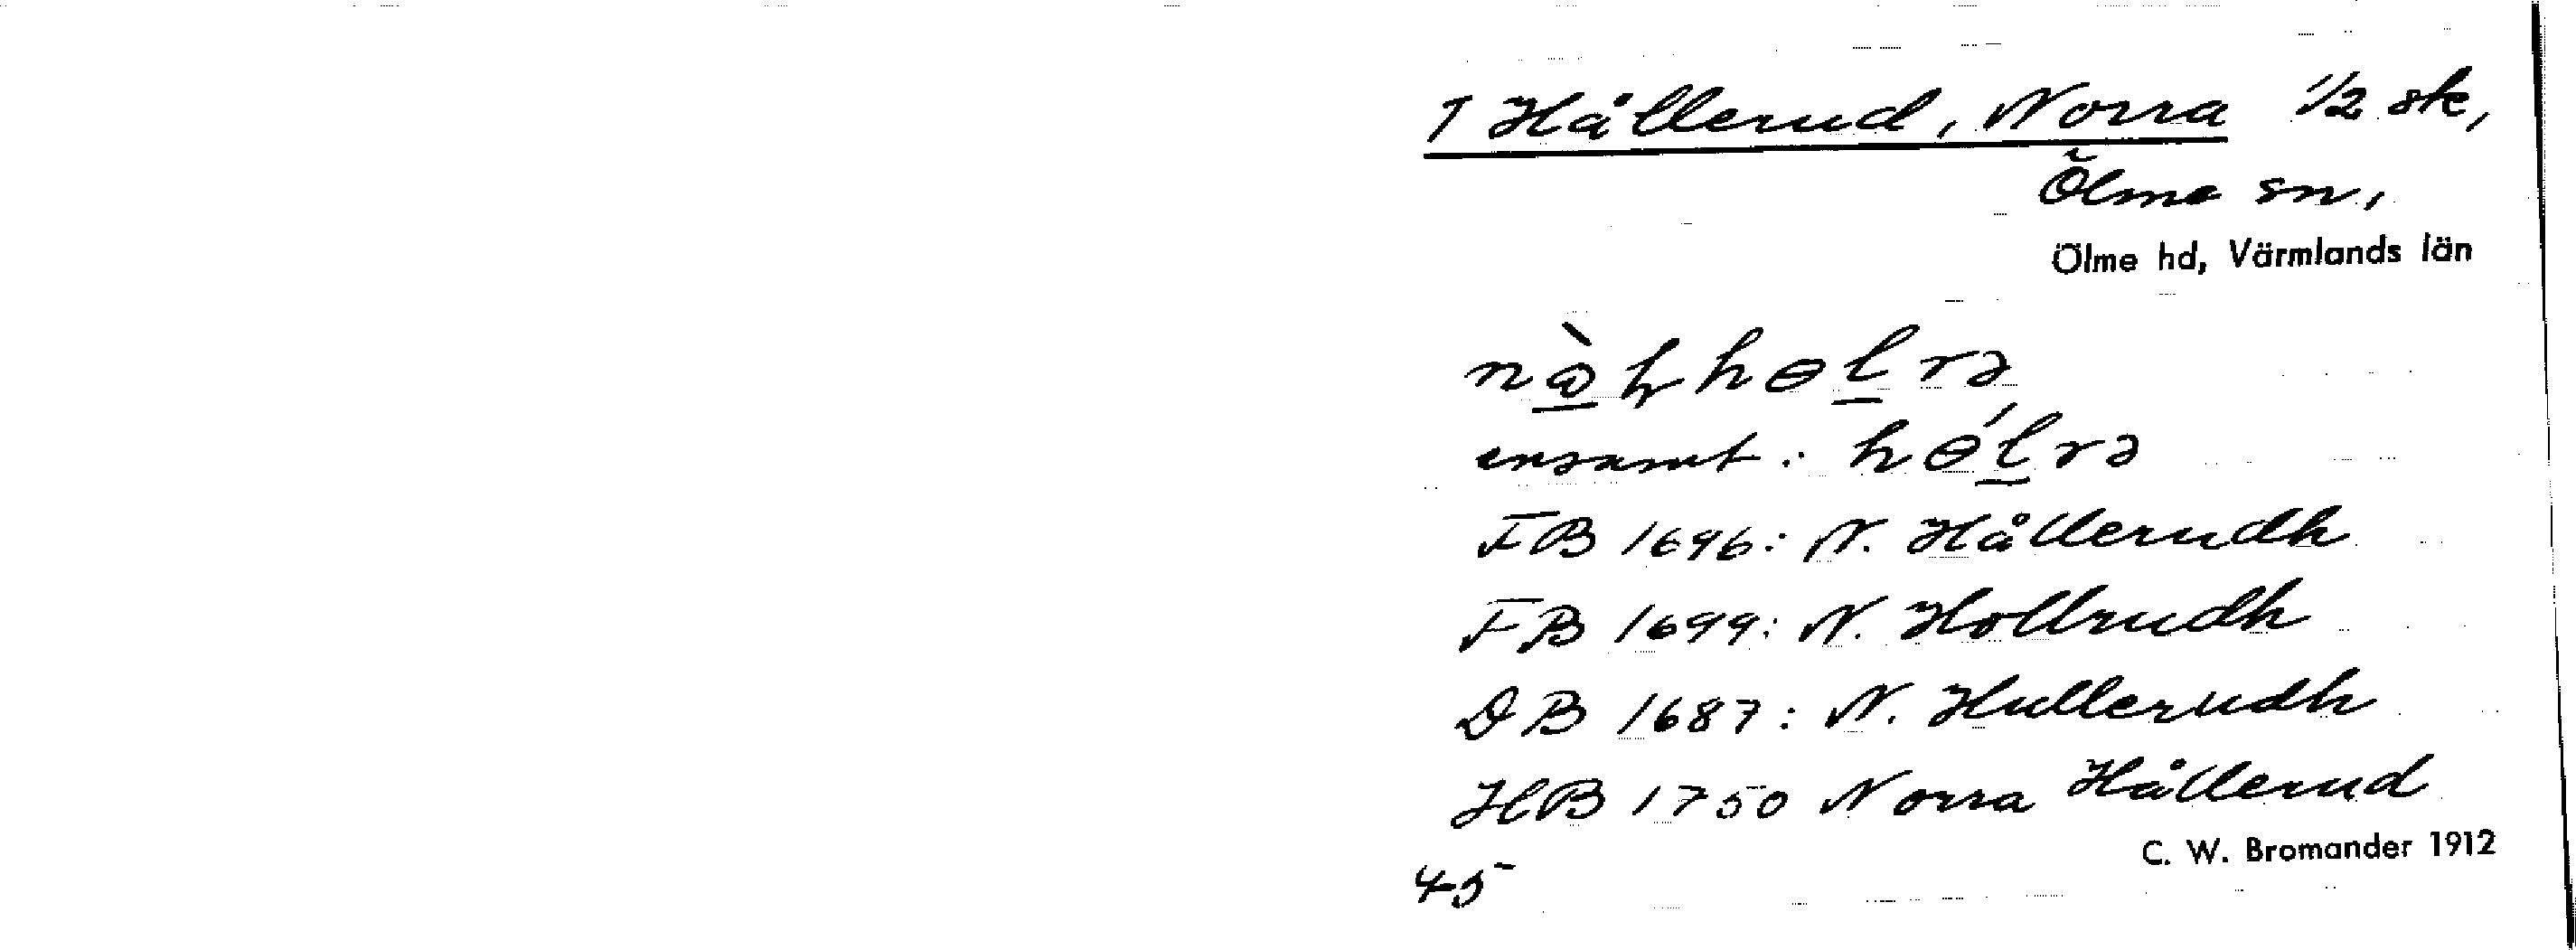 1 Hållerud, Norra 1/2 sk,
Ölme sn,
Ölme hd, Värmlands län
ensamt:
FB 1696: N. Hållerudh
FB 1699: N. Hollrudh
DB 1687: N. Hullerudh
HB 1750 Norra Hållerud
C. W. Bromander 1912
45